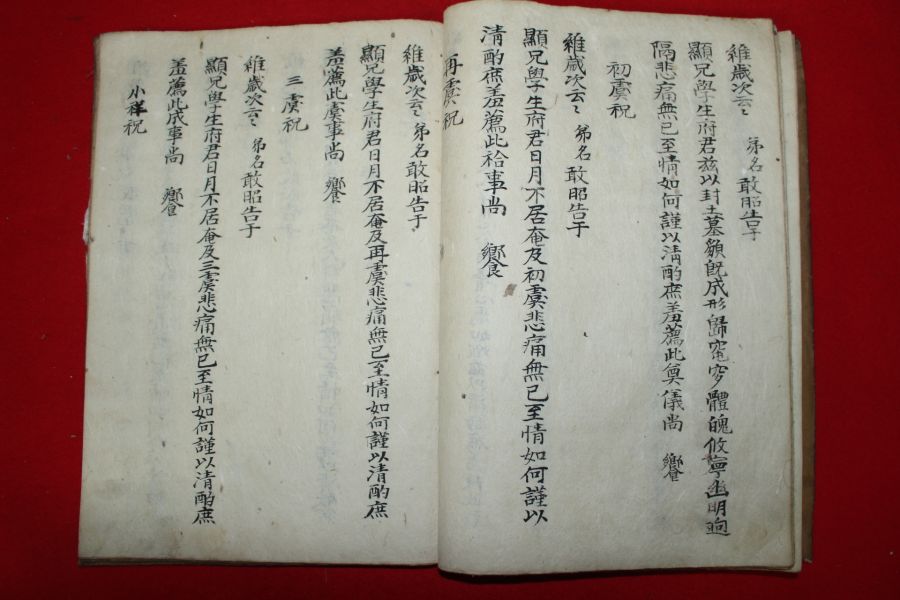 維歲次云〻 弟名敢昭告于
顯兄學生府君玆以封土墓㒹旣成形歸窀穸體魄攸寧幽明逈
隔悲痛無已至情如何謹以淸酌庶羞薦此奠儀尙 饗
初虞祝
維歲次云〻 弟名敢昭告于
顯兄學生府君日月不居奄及初虞悲痛無已至情如何謹以
淸酌庶羞薦此祫事尙 饗
再虞祝
維歲次云〻 弟名敢昭告于
顯兄學生府君日月不居奄及再虞悲痛無已至情如何謹以淸酌庶
羞薦此虞事尙 饗
三虞祝
維歲次云〻 弟名敢昭告于
顯兄學生府君日月不居奄及三虞悲痛無已至情如何謹以淸酌庶
羞薦此成事尙 饗
小祥祝